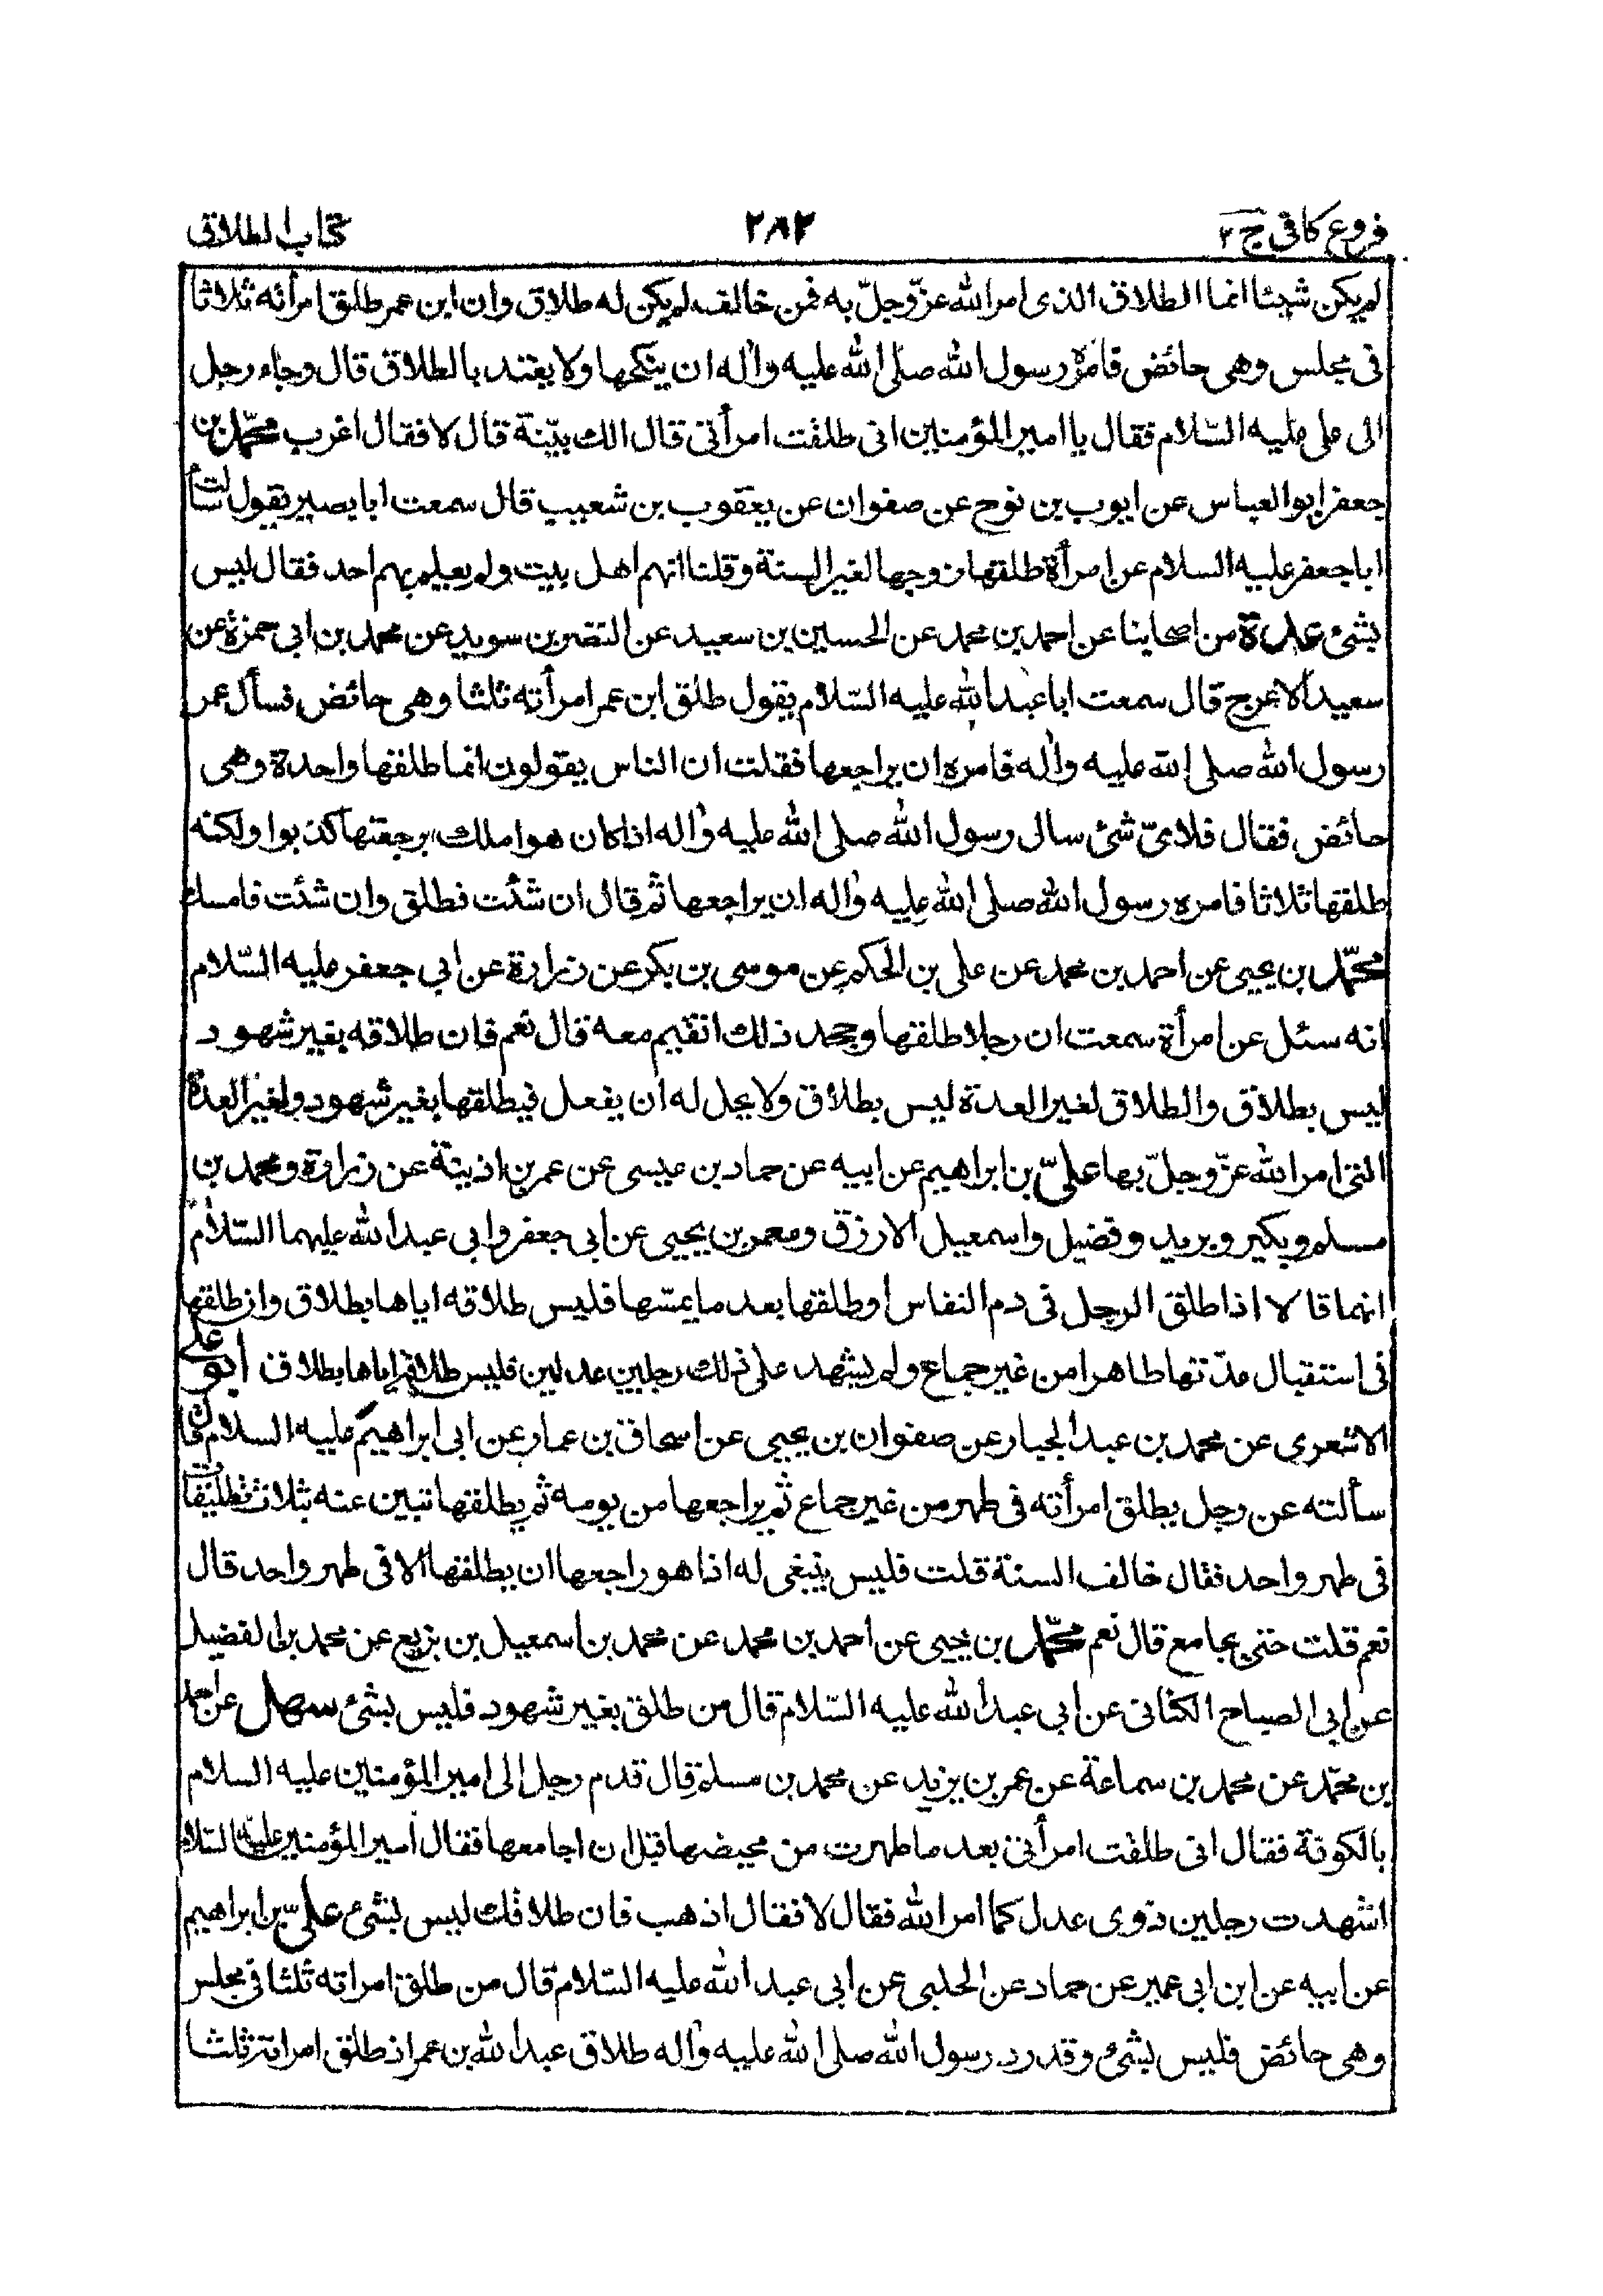 فروع كافى ج ٢
٢٨٢
كتاب الطلاق
لم يكن شيئا انما الطلاق الذى امر الله عزّ وجلّ به فمن خالف لم يكن له طلاق وان ابن عمر طلق امرأته ثلاثا
فى مجلس وهى حائض فامره رسول الله صلى الله عليه واله ان ينكحها ولا يعتد بالطلاق قال وجاء رجل
الى على عليه السّلام فقال يا امير المؤمنين انى طلقت امرأتى قال الك بيّنة قال لا فقال اغرب محمّد بن
جعفر ابو العباس عن ايوب بن نوح عن صفوان عن يعقوب بن شعيب قال سمعت ابا بصير يقول سألت
ابا جعفر عليه السلام عن امرأة طلقها زوجها لغير السنة وقلنا انهم اهل بيت ولم يعلم بهم احد فقال ليس
بشئ عدة من اصحابنا عن احمد بن محمد عن الحسين بن سعيد عن النضر بن سويد عن محمد بن ابى حمزة عن
سعيد الاعرج قال سمعت ابا عبد الله عليه السّلام يقول طلق ابن عمر امرأته ثلثا وهى حائض فسأل عمر
رسول الله صلى الله عليه واله فامره ان يراجعها فقلت ان الناس يقولون انما طلقها واحدة وهى
حائض فقال فلاىّ شئ سال رسول الله صلى الله عليه واله اذا كان هو املك برجعتها كذبوا ولكنه
طلقها ثلاثا فامره رسول الله صلى الله عليه واله ان يراجعها ثم قال ان شئت فطلق وان شئت فامسك
محمّد بن يحيى عن احمد بن محمد عن على بن الحكم عن موسى بن بكر عن زرارة عن ابى جعفر عليه السّلام
انه سئل عن امرأة سمعت ان رجلا طلقها وجحد ذلك اتقيم معه قال نعم فان طلاقه بغير شهود
ليس بطلاق والطلاق لغير العدة ليس بطلاق ولا يحل له ان يفعل فيطلقها بغير شهود ولغير العدة
التى امر الله عزّ وجلّ بها علىّ بن ابراهيم عن ابيه عن حماد بن عيسى عن عمر بن اذينة عن زرارة ومحمد بن
مسلم وبكير وبريد وفضيل واسمعيل الازرق ومعمر بن يحيى عن ابى جعفر وابى عبد الله عليهما السّلام
انهما قالا اذا طلق الرجل فى دم النفاس او طلقها بعد ما يمسّها فليس طلاقه اياها بطلاق وان طلقها
فى استقبال عدّتها طاهرا من غير جماع ولم يشهد على ذلك رجلين عدلين فليس طلاقه اياها بطلاق ابو على
الاشعرى عن محمد بن عبد الجبار عن صفوان بن يحيى عن اسحاق بن عمار عن ابى ابراهيم عليه السلام قال
سألته عن رجل يطلق امرأته فى طهر من غير جماع ثم يراجعها من يومه ثم يطلقها تبين عنه بثلاث تطليقات
فى طهر واحد فقال خالف السنة قلت فليس ينبغى له اذا هو راجعها ان يطلقها الا فى طهر واحد قال
نعم قلت حتى يجامع قال نعم محمّد بن يحيى عن احمد بن محمد عن محمد بن اسمعيل بن بزيع عن محمد بن الفضيل
عن ابى الصباح الكنانى عن ابى عبد الله عليه السّلام قال من طلق بغير شهود فليس بشئ سهل عن احمد
بن محمّد عن محمد بن سماعة عن عمر بن يزيد عن محمد بن مسلم قال قدم رجل الى امير المؤمنين عليه السلام
بالكوفة فقال انى طلقت امرأتى بعد ما طهرت من محيضها قبل ان اجامعها فقال امير المؤمنين عليه السّلام
اشهدت رجلين ذوى عدل كما امر الله فقال لا فقال اذهب فان طلاقك ليس بشئ علىّ بن ابراهيم
عن ابيه عن ابن ابى عمير عن حماد عن الحلبى عن ابى عبد الله عليه السّلام قال من طلق امراته ثلثا فى مجلس
وهى حائض فليس بشئ وقد رد رسول الله صلى الله عليه واله طلاق عبد الله بن عمر اذ طلق امراته ثلثا